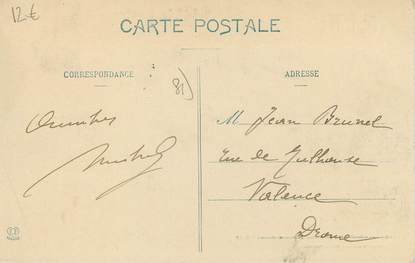 12€
CARTE POSTALE
CORRESPONDANCE
ADRESSE
81)
M Jean Brunel
Rue de Mulhouse
Valence
Drome